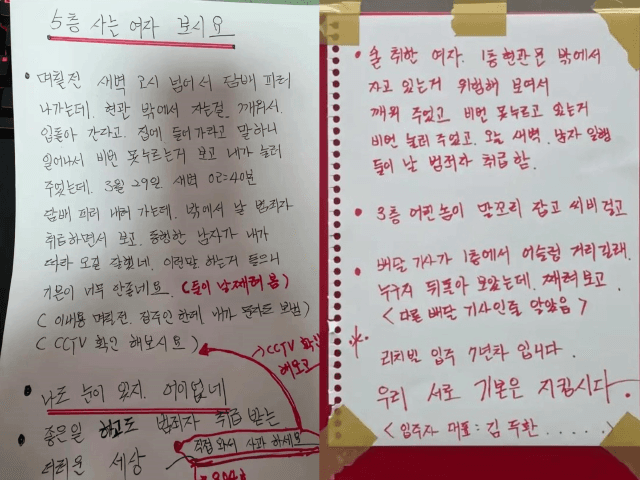 5층 사는 여자 보시요
• 며칠전 새벽 2시 넘어서 담배 피러
나가는데. 현관 밖에서 자는걸 깨워서.
입돌아 간다고. 집에 들어가라고 말하니
일어나서 비번 못누르는거 보고 내가 눌러
주었는데. 3월 29일 새벽 02:40분
담배 피러 내려 가는데. 밖에서 날 범죄자
취급하면서 보고. 동행한 남자가 내가
따라 오길 잘했네. 이런말 하는거 들으니
기분이 너무 안좋네요. (둘이 날 째려 봄)
( 이내용 며칠전. 집주인 한테 내가
( CCTV 확인 해보시요 )
CCTV 확인
해보고
• 나도 눈이 있지. 어이없네
좋은일 하고도 범죄자 취급 받는
직접 와서 사과 하세요
더러운 세상
• 술 취한 여자. 1층 현관문 밖에서
자고 있는거 위험해 보여서
깨워 주었고 비번 못누르고 있는거
비번 눌러 주었고. 오늘 새벽. 남자 일행
둘이 날 범죄자 취급함.
• 3층 어떤놈이 말꼬리 잡고 시비 걸고
• 배달 기사가 1층에서 어슬렁 거리길래.
누구지 뒤돌아 보았는데. 째려보고.
< 다른 배달 기사인줄 알았음 >
리치빌 입주 7년차 입니다.
우리 서로 기본은 지킵시다.
< 입주자 대표 : 김 두환 . . . . . . >